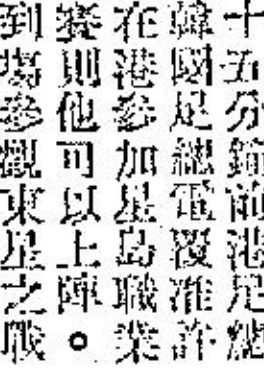 十五分鐘前港足總
韓國足總電覆准許
在港參加星島職業
賽則他可以上陣。
到場參觀東星之戰